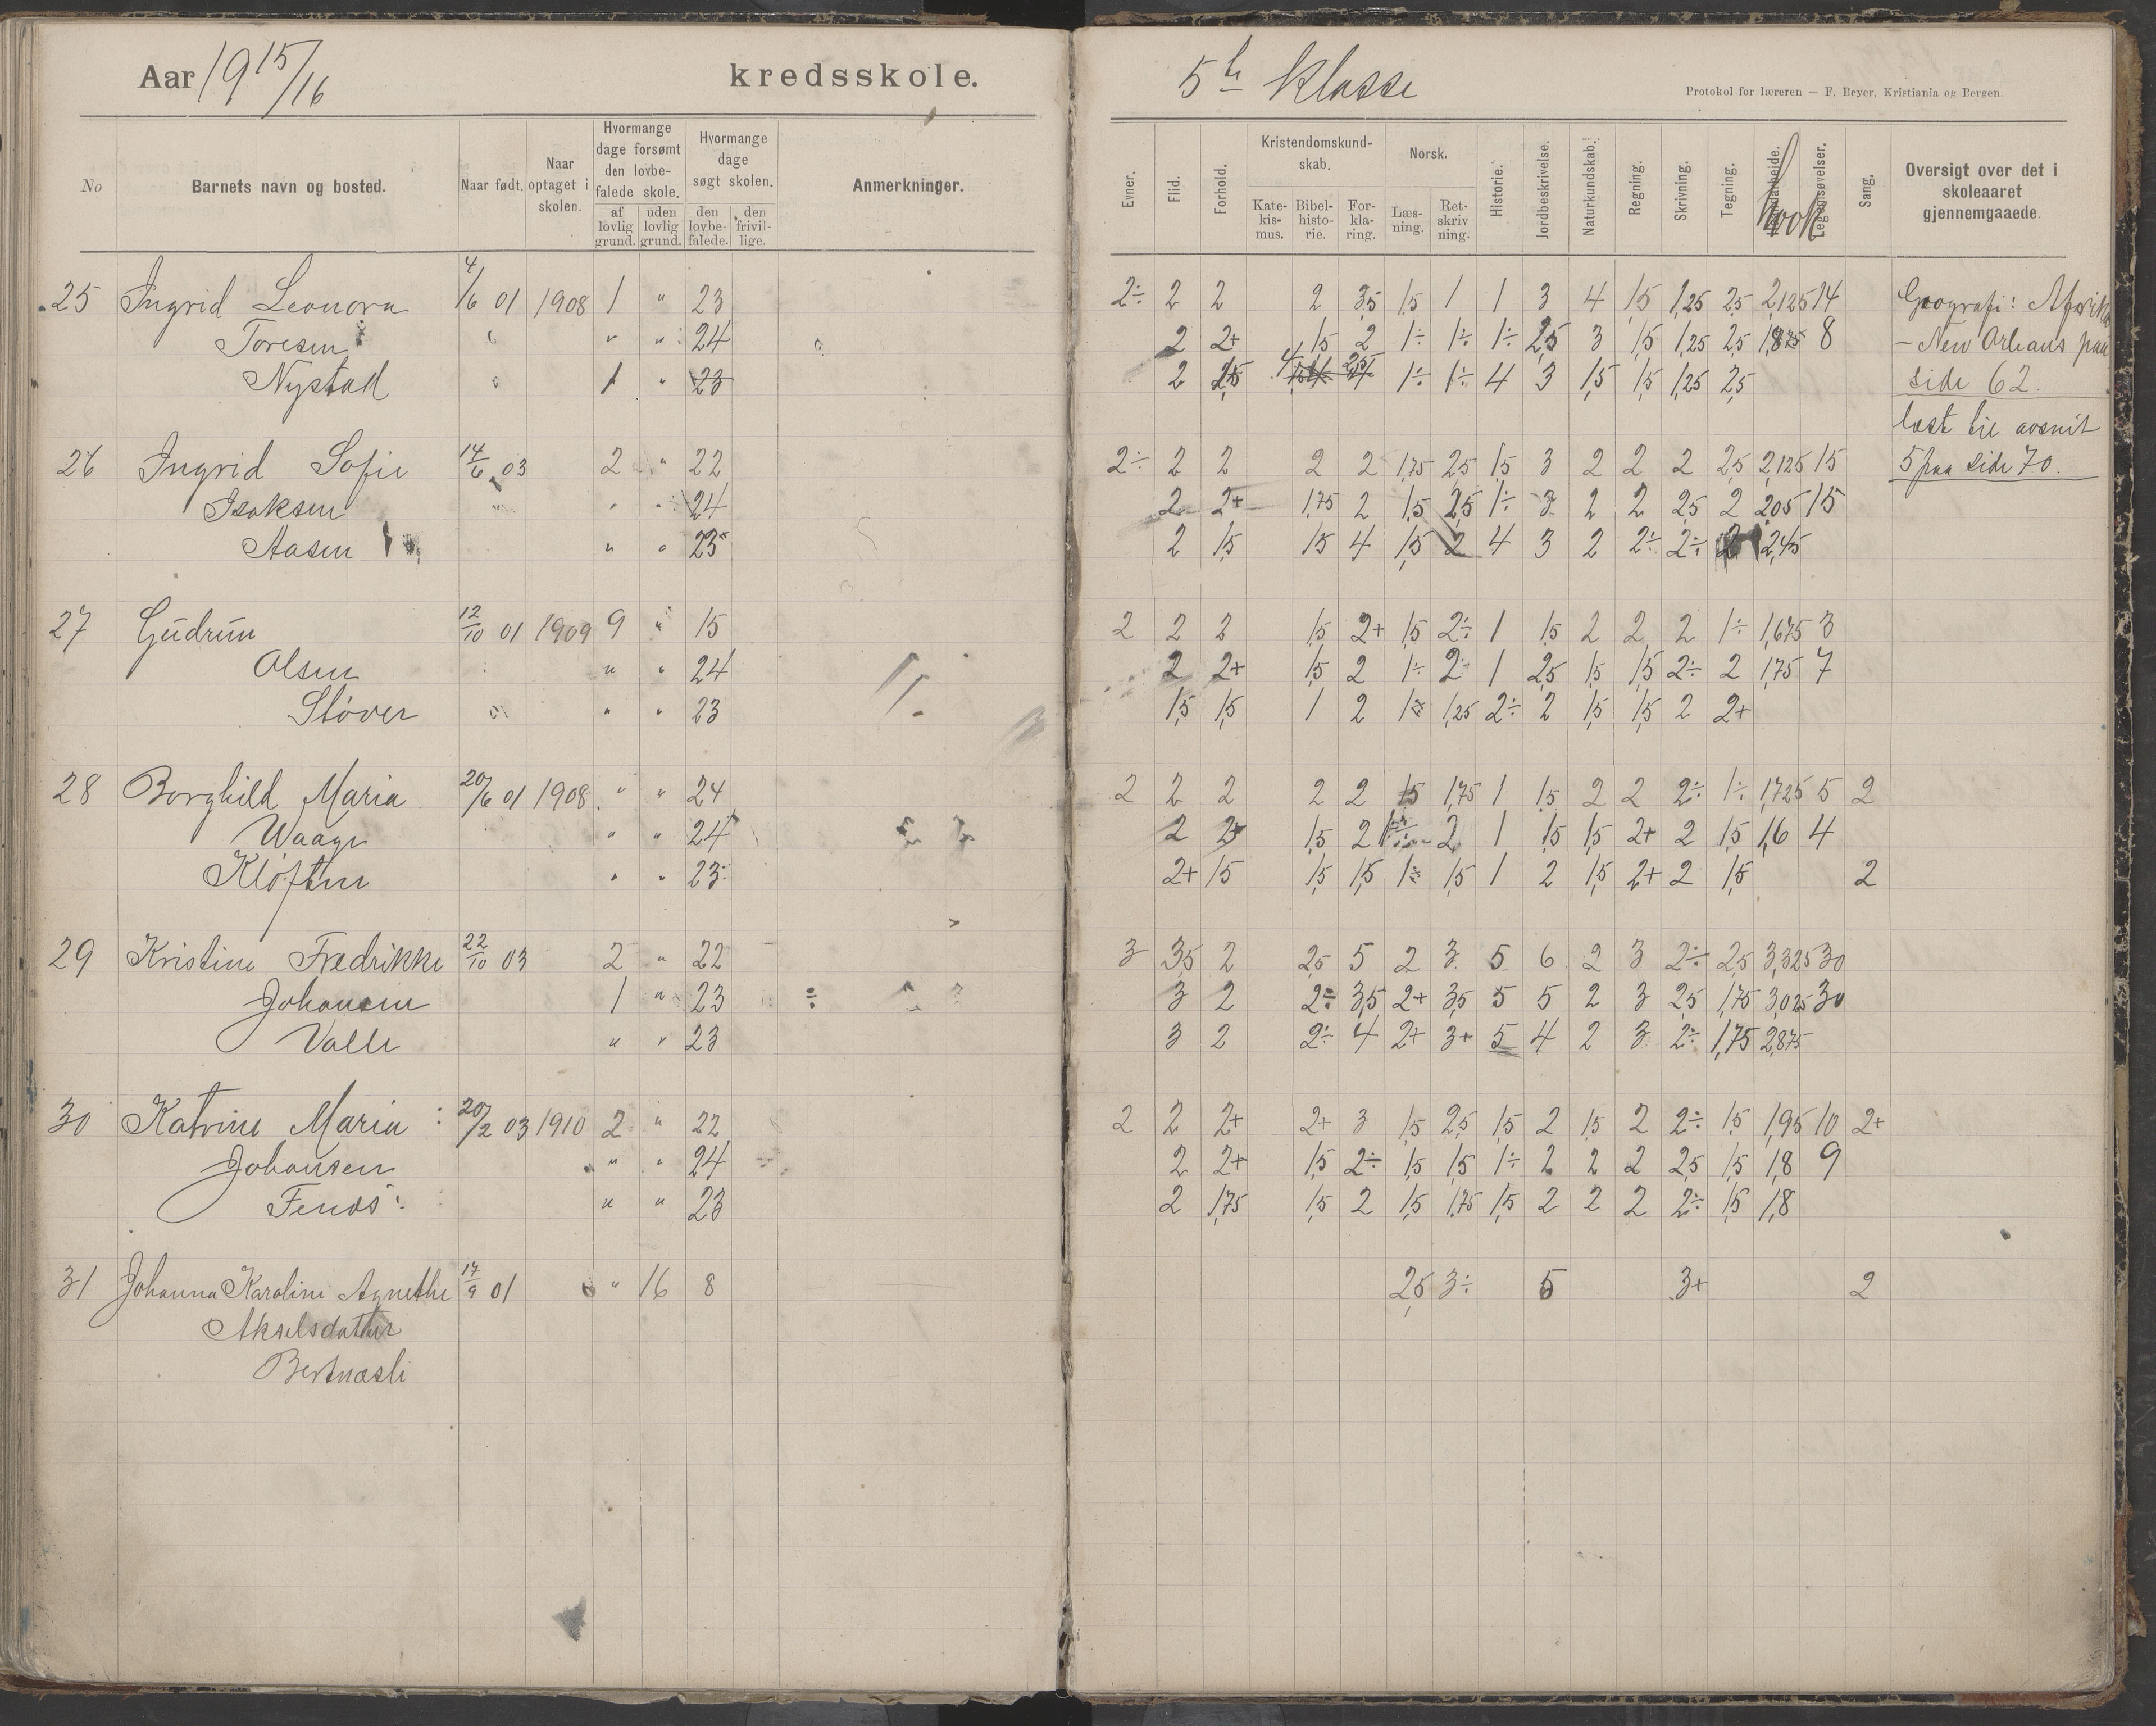 Aar 1915/16 kredsskole.
No Barnets navn og bosted. Naar født. Naar optaget i skolen. Hvormange dage forsømt den lovbefalede skole. af lovlig grund. uden lovlig grund. Hvormange dage søgt skolen. den lovbefalede. den frivillige. Anmerkninger.
25 Ingrid Leonora 4/6 01 1908 1 " 23
Toresen " " 24
Nystad 1 " 23
26 Ingrid Sofie 14/6 03 2 " 22
Isaksen " " 24
Aasen " " 23
27 Gudrun 12/10 01 1909 9 " 15
Olsen " " 24
Støver " " 23
28 Borghild Maria 20/6 01 1908 " " 24
Waage " " 24
Kløften " " 23
29 Kristine Fredrikke 22/10 03 2 " 22
Johansen 1 " 23
Valle " " 23
30 Katrine Maria 20/2 03 1910 2 " 22
Johansen " " 24
Fenes " " 23
31 Johanna Karoline Agnethe 17/9 01 " 16 8
Akselsdatter
Bertnæsli
5te Klasse
Protokol for læreren — F. Beyer, Kristiania og Bergen.
Evner. Flid. Forhold. Kristendomskundskab. Katekismus. Bibelhistorie. Forklaring. Norsk. Læsning. Retskrivning. Historie. Jordbeskrivelse. Naturkundskab. Regning. Skrivning. Tegning. Haandarbeide. Legemsøvelser. Sang. Oversigt over det i skoleaaret gjennemgaaede.
2÷ 2 2 2 3,5 1,5 1 1 3 4 1,5 1,25 2,5 2,125 14 Geografi: Afrika
2 2+ 1,5 2 1÷ 1÷ 1÷ 2,5 3 1,5 1,25 2,5 1,875 8 – New Orleans paa
2 2,5 1÷ 1÷ 4 3 1,5 1,5 1,25 2,5 side 62.
læst til avsnit
2÷ 2 2 2 2 1,75 2,5 1,5 3 2 2 2 2,5 2,125 15 5 paa side 70.
2 2+ 1,75 2 1,5 2,5 1÷ 3 2 2 2,5 2 2,05 15
2 1,5 1,5 4 1,5 2 4 3 2 2÷ 2÷ 2 2,45
2 2 2 1,5 2+ 1,5 2÷ 1 1,5 2 2 2 1÷ 1,675 3
2 2+ 1,5 2 1÷ 2 1 2,5 1,5 1,5 2÷ 2 1,75 7
1,5 1,5 1 2 1÷ 1,25 2÷ 2 1,5 1,5 2 2+
2 2 2 2 2 1,5 1,75 1 1,5 2 2 2÷ 1÷ 1,725 5 2
2 2+ 1,5 2 1÷ 2 1 1,5 1,5 2+ 2 1,5 1,6 4
2+ 1,5 1,5 1,5 1÷ 1,5 1 2 1,5 2+ 2 1,5 2
3 3,5 2 2,5 5 2 3 5 6 2 3 2÷ 2,5 3,325 30
3 2 2÷ 3,5 2+ 3,5 5 5 2 3 2,5 1,75 3,025 30
3 2 2÷ 4 2+ 3+ 5 4 2 3 2÷ 1,75 2,875
2 2 2+ 2+ 3 1,5 2,5 1,5 2 1,5 2 2÷ 1,5 1,95 10 2+
2 2+ 1,5 2÷ 1,5 1,5 1÷ 2 2 2 2,5 1,5 1,8 9
2 1,75 1,5 2 1,5 1,75 1,5 2 2 2 2÷ 1,5 1,8
2,5 3÷ 5 3+ 2